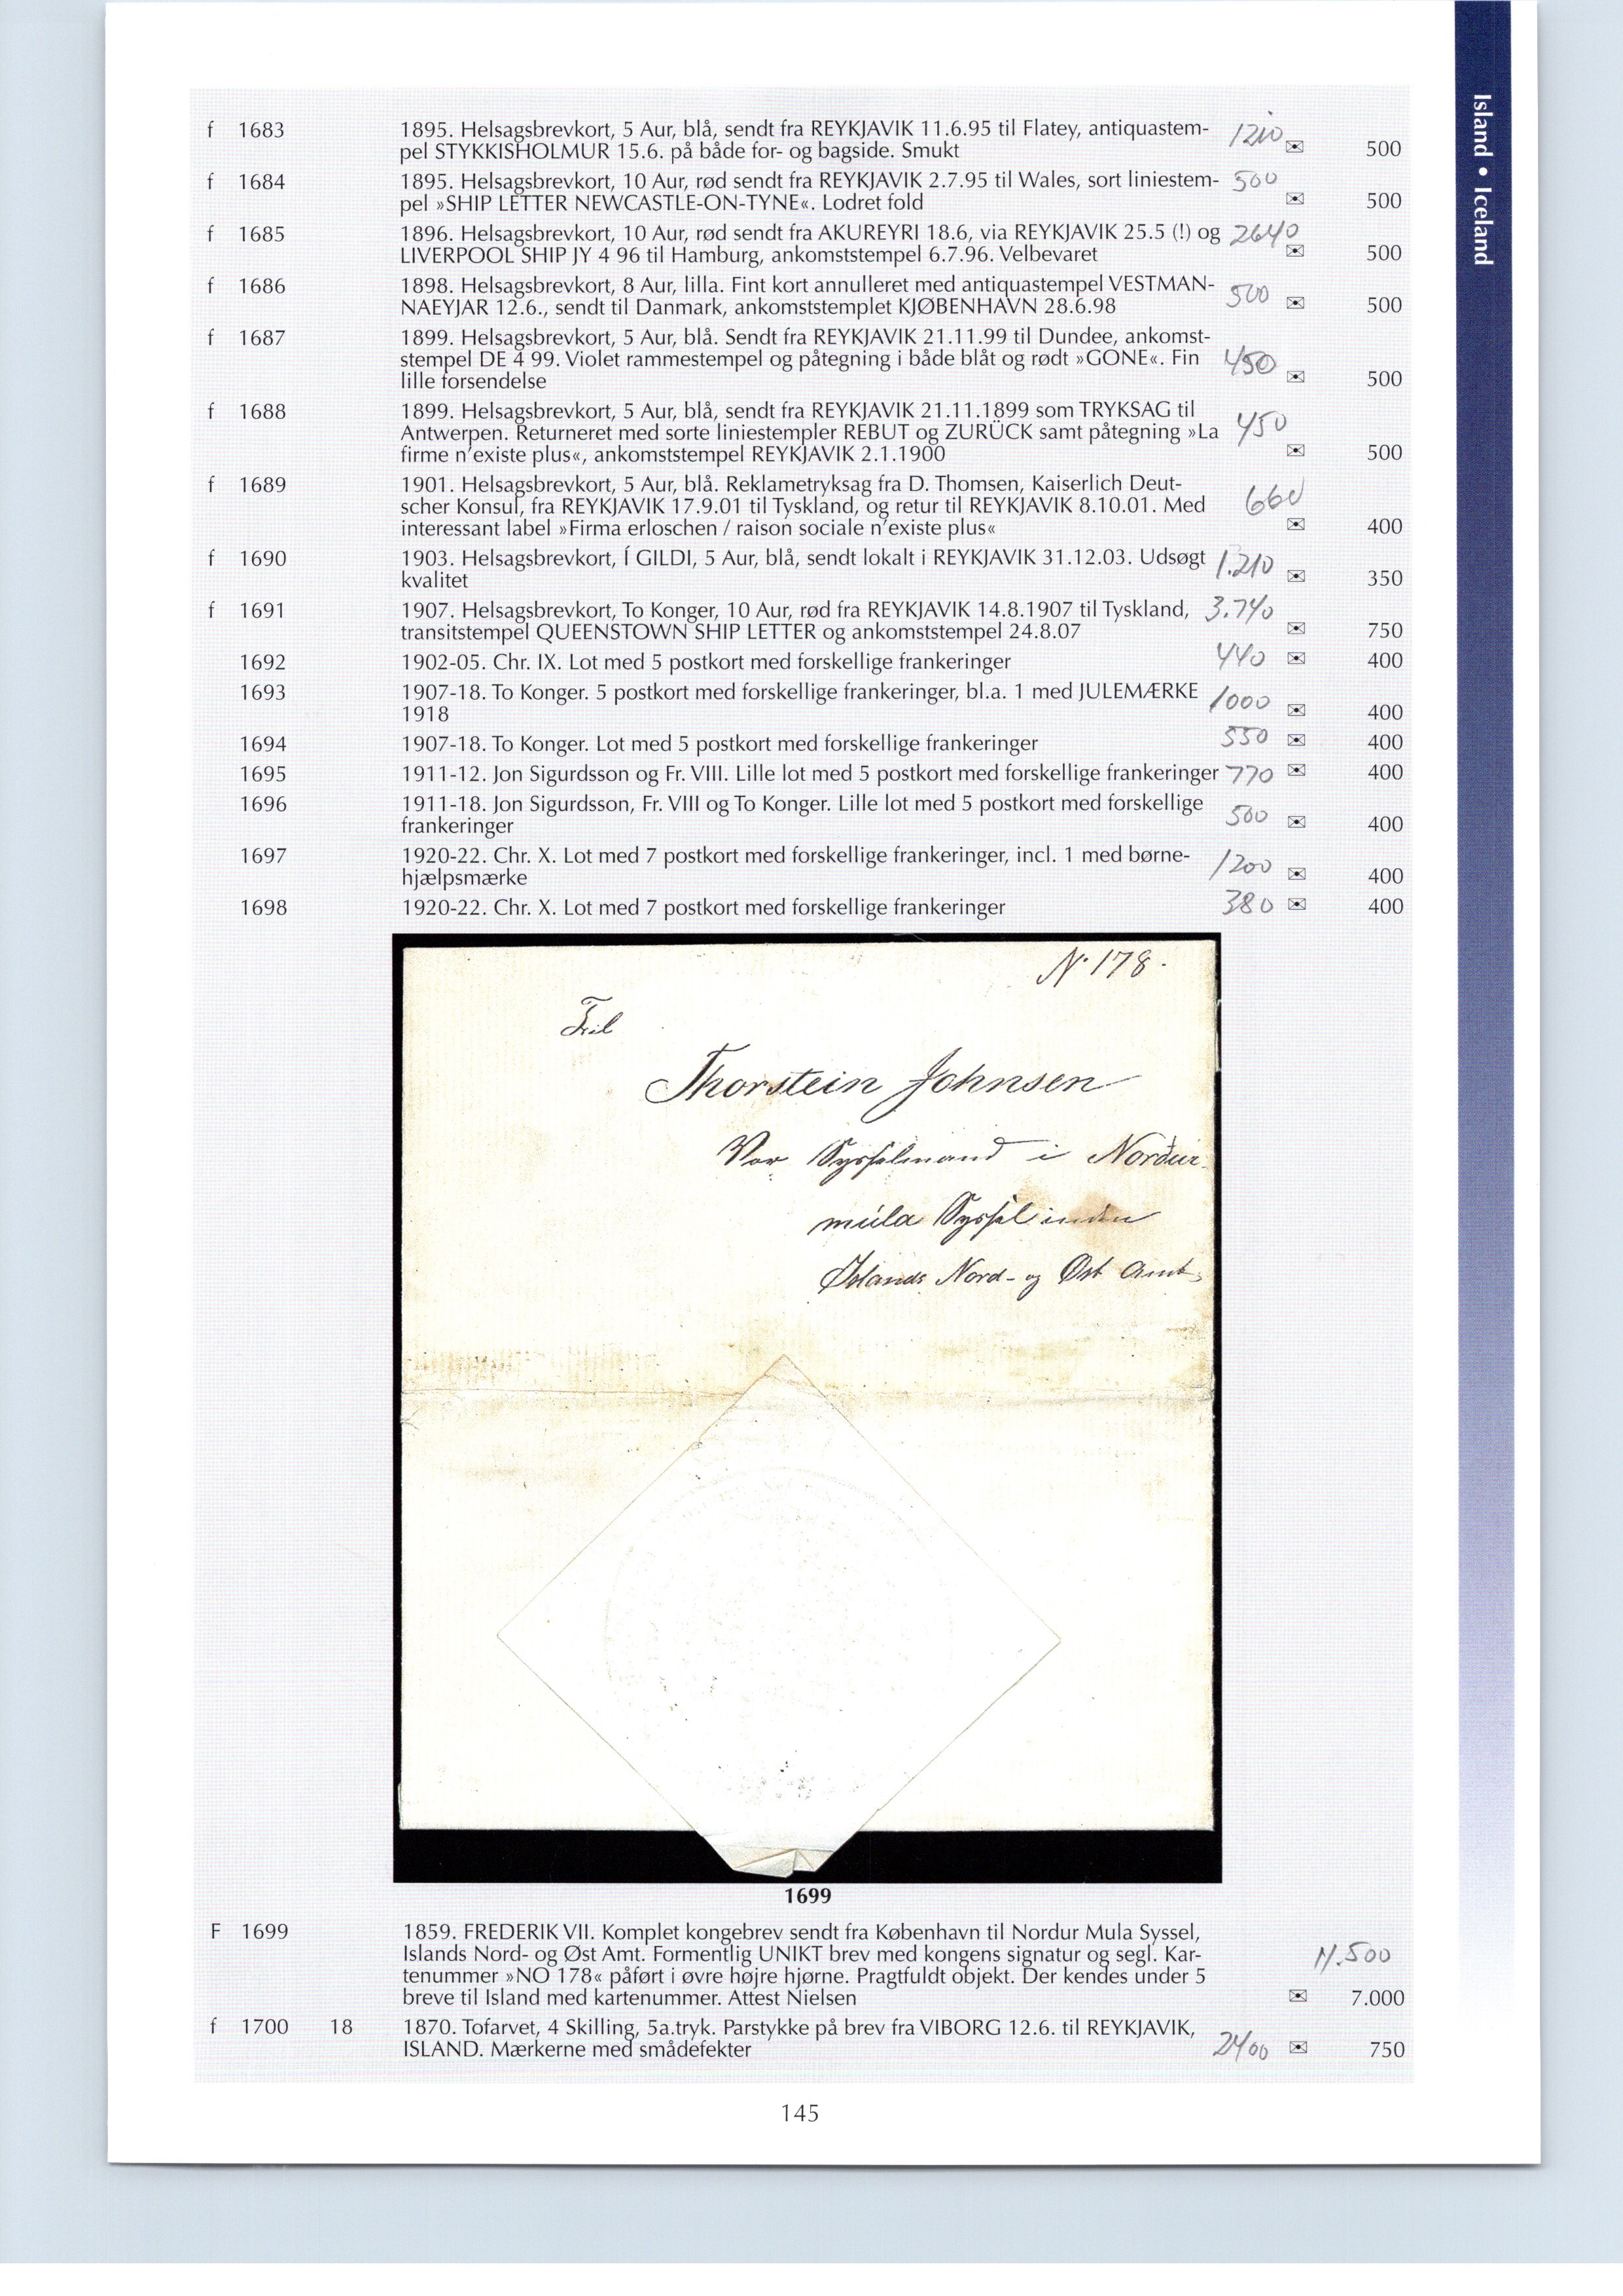 Island • Iceland
f 1683 1895. Helsagsbrevkort, 5 Aur, blå, sendt fra REYKJAVIK 11.6.95 til Flatey, antiquastem-
pel STYKKISHOLMUR 15.6. på både for- og bagside. Smukt ✉ 500
f 1684 1895. Helsagsbrevkort, 10 Aur, rød sendt fra REYKJAVIK 2.7.95 til Wales, sort liniestem- 500
pel »SHIP LETTER NEWCASTLE-ON-TYNE«. Lodret fold ✉ 500
f 1685 1896. Helsagsbrevkort, 10 Aur, rød sendt fra AKUREYRI 18.6, via REYKJAVIK 25.5 (!) og 2640
LIVERPOOL SHIP JY 4 96 til Hamburg, ankomststempel 6.7.96. Velbevaret ✉ 500
f 1686 1898. Helsagsbrevkort, 8 Aur, lilla. Fint kort annulleret med antiquastempel VESTMAN- 500
NAEYJAR 12.6., sendt til Danmark, ankomststemplet KJØBENHAVN 28.6.98 ✉ 500
f 1687 1899. Helsagsbrevkort, 5 Aur, blå. Sendt fra REYKJAVIK 21.11.99 til Dundee, ankomst-
stempel DE 4 99. Violet rammestempel og påtegning i både blåt og rødt »GONE«. Fin 450
lille forsendelse ✉ 500
f 1688 1899. Helsagsbrevkort, 5 Aur, blå, sendt fra REYKJAVIK 21.11.1899 som TRYKSAG til
Antwerpen. Returneret med sorte liniestempler REBUT og ZURÜCK samt påtegning »La 450
firme n'existe plus«, ankomststempel REYKJAVIK 2.1.1900 ✉ 500
f 1689 1901. Helsagsbrevkort, 5 Aur, blå. Reklametryksag fra D. Thomsen, Kaiserlich Deut-
scher Konsul, fra REYKJAVIK 17.9.01 til Tyskland, og retur til REYKJAVIK 8.10.01. Med 660
interessant label »Firma erloschen / raison sociale n'existe plus« ✉ 400
f 1690 1903. Helsagsbrevkort, Í GILDI, 5 Aur, blå, sendt lokalt i REYKJAVIK 31.12.03. Udsøgt 1.210
kvalitet ✉ 350
f 1691 1907. Helsagsbrevkort, To Konger, 10 Aur, rød fra REYKJAVIK 14.8.1907 til Tyskland, 3.740
transitstempel QUEENSTOWN SHIP LETTER og ankomststempel 24.8.07 ✉ 750
1692 1902-05. Chr. IX. Lot med 5 postkort med forskellige frankeringer 440 ✉ 400
1693 1907-18. To Konger. 5 postkort med forskellige frankeringer, bl.a. 1 med JULEMÆRKE 1000
1918 ✉ 400
1694 1907-18. To Konger. Lot med 5 postkort med forskellige frankeringer 550 ✉ 400
1695 1911-12. Jon Sigurdsson og Fr. VIII. Lille lot med 5 postkort med forskellige frankeringer 770 ✉ 400
1696 1911-18. Jon Sigurdsson, Fr. VIII og To Konger. Lille lot med 5 postkort med forskellige 500
frankeringer ✉ 400
1697 1920-22. Chr. X. Lot med 7 postkort med forskellige frankeringer, incl. 1 med børne- 1200
hjælpsmærke ✉ 400
1698 1920-22. Chr. X. Lot med 7 postkort med forskellige frankeringer 380 ✉ 400
N. 178.
Til
Thorstein Johnsen
Vor Sysselmand i Nordur
mula Syssel inden
Islands Nord- og Øst Amt
1699
F 1699 1859. FREDERIK VII. Komplet kongebrev sendt fra København til Nordur Mula Syssel,
Islands Nord- og Øst Amt. Formentlig UNIKT brev med kongens signatur og segl. Kar- 11.500
tenummer »NO 178« påført i øvre højre hjørne. Pragtfuldt objekt. Der kendes under 5
breve til Island med kartenummer. Attest Nielsen ✉ 7.000
f 1700 18 1870. Tofarvet, 4 Skilling, 5a.tryk. Parstykke på brev fra VIBORG 12.6. til REYKJAVIK,
ISLAND. Mærkerne med smådefekter 2400 ✉ 750
145